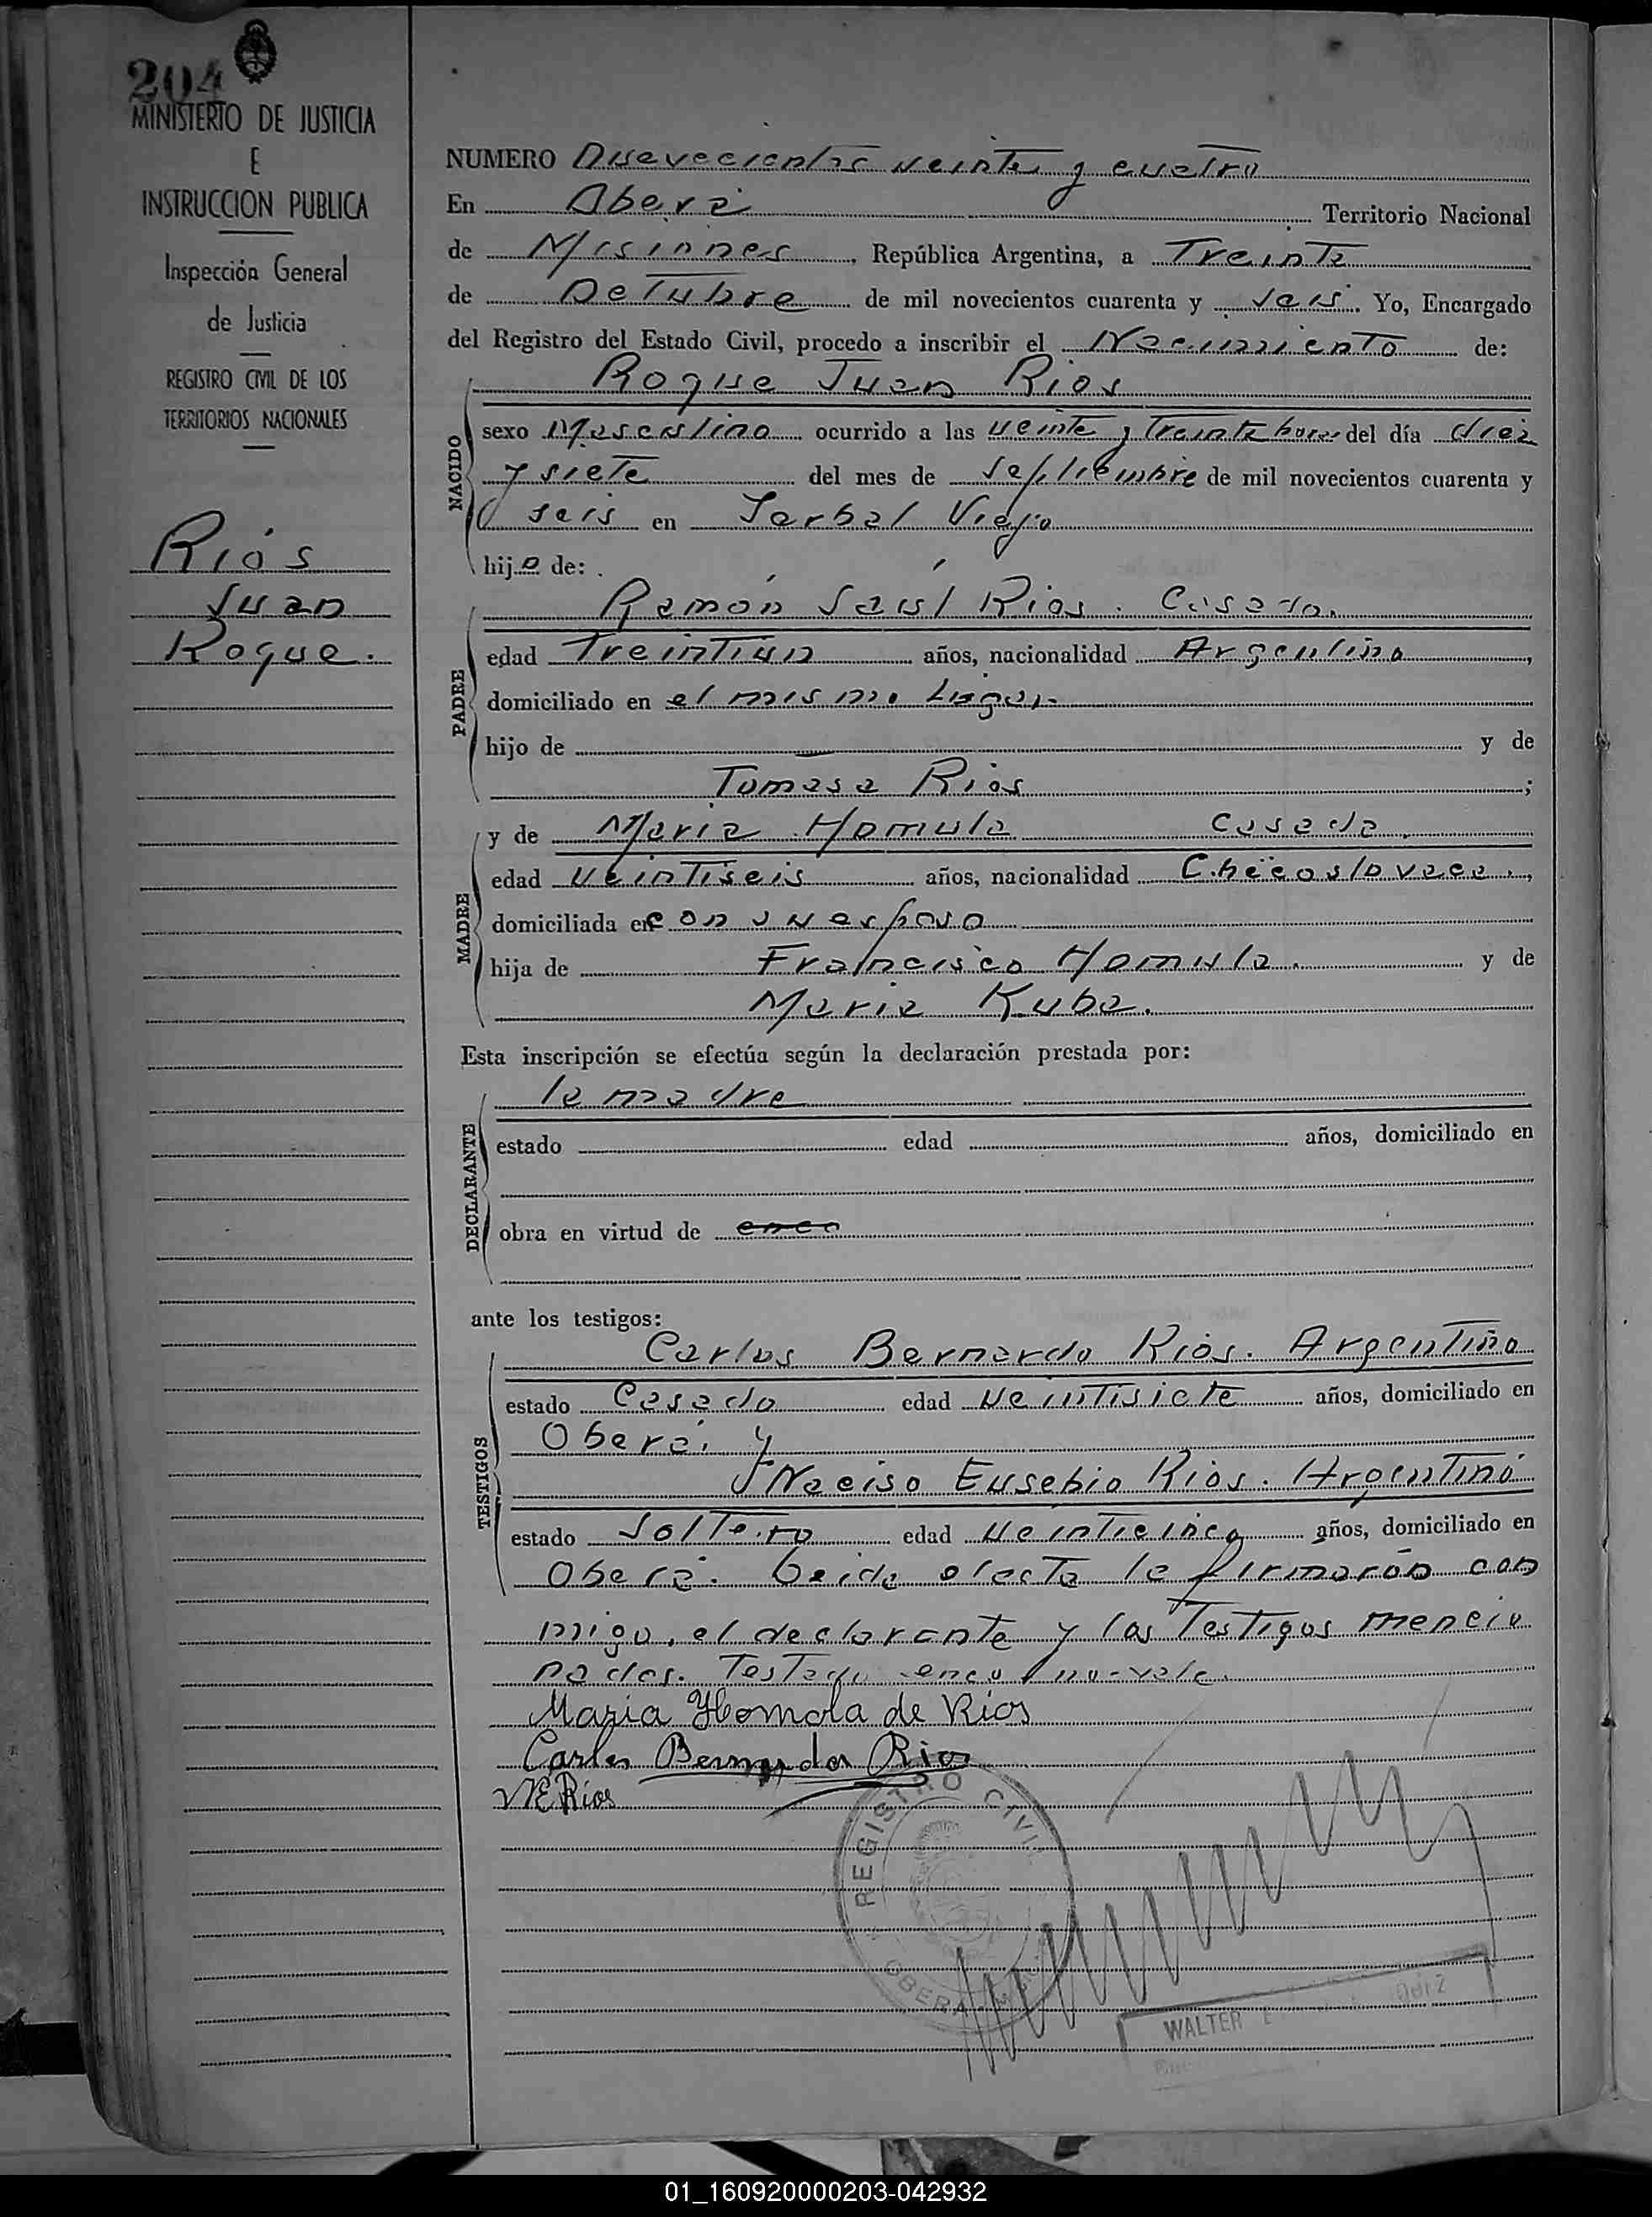 204
MINISTERIO DE JUSTICIA
E
INSTRUCCION PUBLICA
Inspección General
de Justicia
REGISTRO CIVIL DE LOS
TERRITORIOS NACIONALES
Ríos
Juan
Roque.
NUMERO Nuevecientos veinte y cuatro
En Oberá Territorio Nacional
de Misiones, República Argentina, a Treinta
de Octubre de mil novecientos cuarenta y seis. Yo, Encargado
del Registro del Estado Civil, procedo a inscribir el Nacimiento de:
Roque Juan Rios
NACIDO
sexo Masculino ocurrido a las veinte y treinta horas del día diez
y siete del mes de septiembre de mil novecientos cuarenta y
seis en Yerbal Viejo
hijo de:
PADRE
Ramón Saúl Ríos. Casado.
edad Treintiun años, nacionalidad Argentino,
domiciliado en el mismo Lugar.
hijo de — y de
Tomasa Rios;
MADRE
y de Maria Homula casada.
edad veintiseis años, nacionalidad Checoslovaca.,
domiciliada en con su esposo
hija de Francisco Homula. y de
Maria Kuba.
Esta inscripción se efectúa según la declaración prestada por:
DECLARANTE
la madre
estado edad años, domiciliado en
obra en virtud de enco
ante los testigos:
TESTIGOS
Carlos Bernardo Rios. Argentino
estado Casado edad veintisiete años, domiciliado en
Oberá, y
Naciso Eusebio Rios. Argentino
estado Soltero edad veinticinco años, domiciliado en
Oberá. Leida el acta la firmarón con
migo, el declarante y los Testigos mencio
nados. Testado enco no-vale.
Maria Homola de Rios
Carlos Bernardo Rios
NE Rios
REGISTRO CIVIL
OBERA
WALTER
01_160920000203-042932